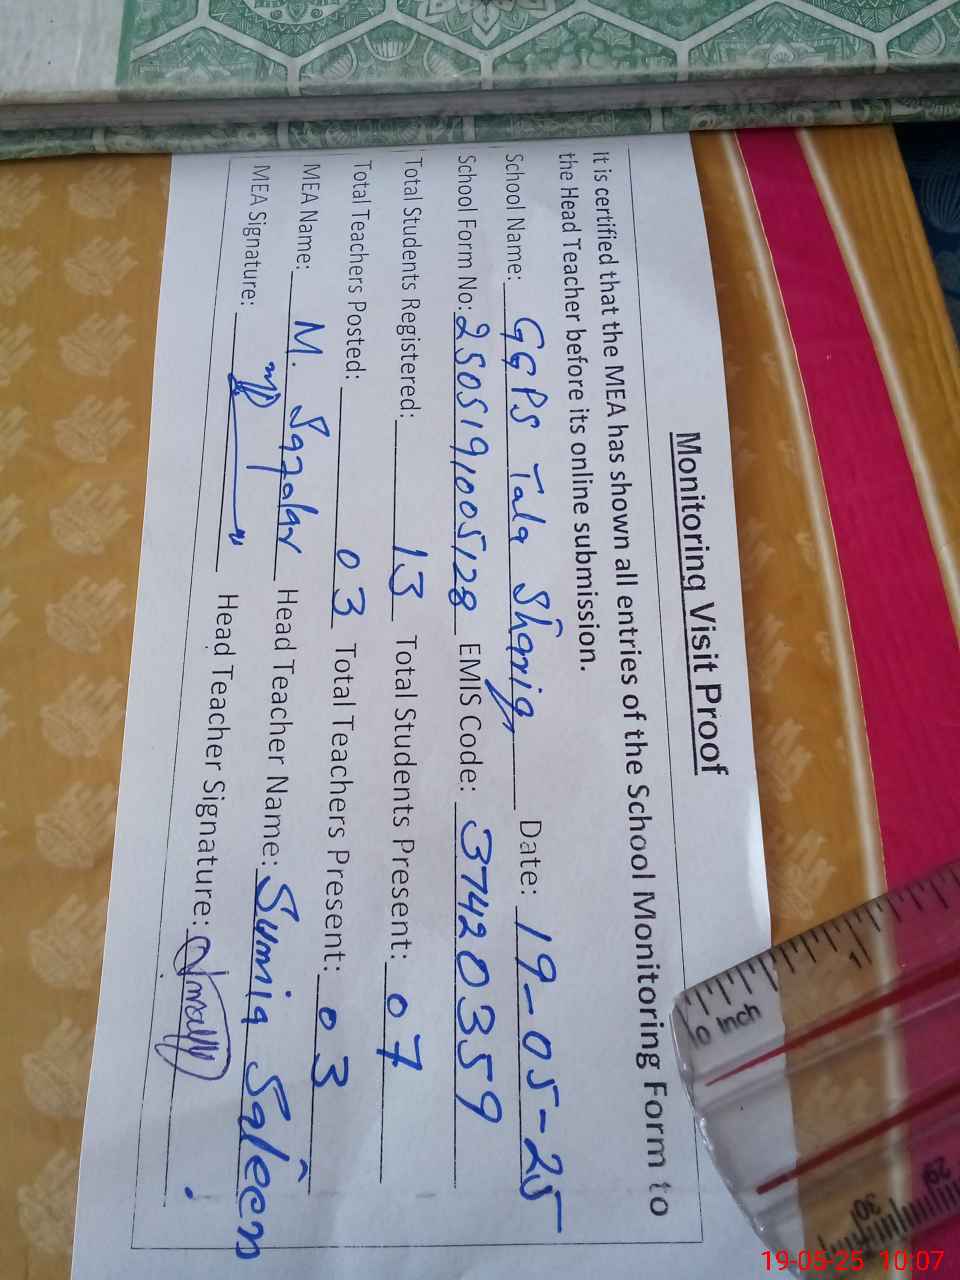 Monitoring Visit Proof
It is certified that the MEA has shown all entries of the School Monitoring Form to
the Head Teacher before its online submission.
School Name: GGPS Tala Sharif Date: 19-05-25
School Form No: 2505191005128 EMIS Code: 37420359
Total Students Registered: 13 Total Students Present: 07
Total Teachers Posted: 03 Total Teachers Present: 03
MEA Name: M. Head Teacher Name: Sumia Saleem
MEA Signature: Head Teacher Signature:
0 Inch
1
29
30
19-05-25 10:07